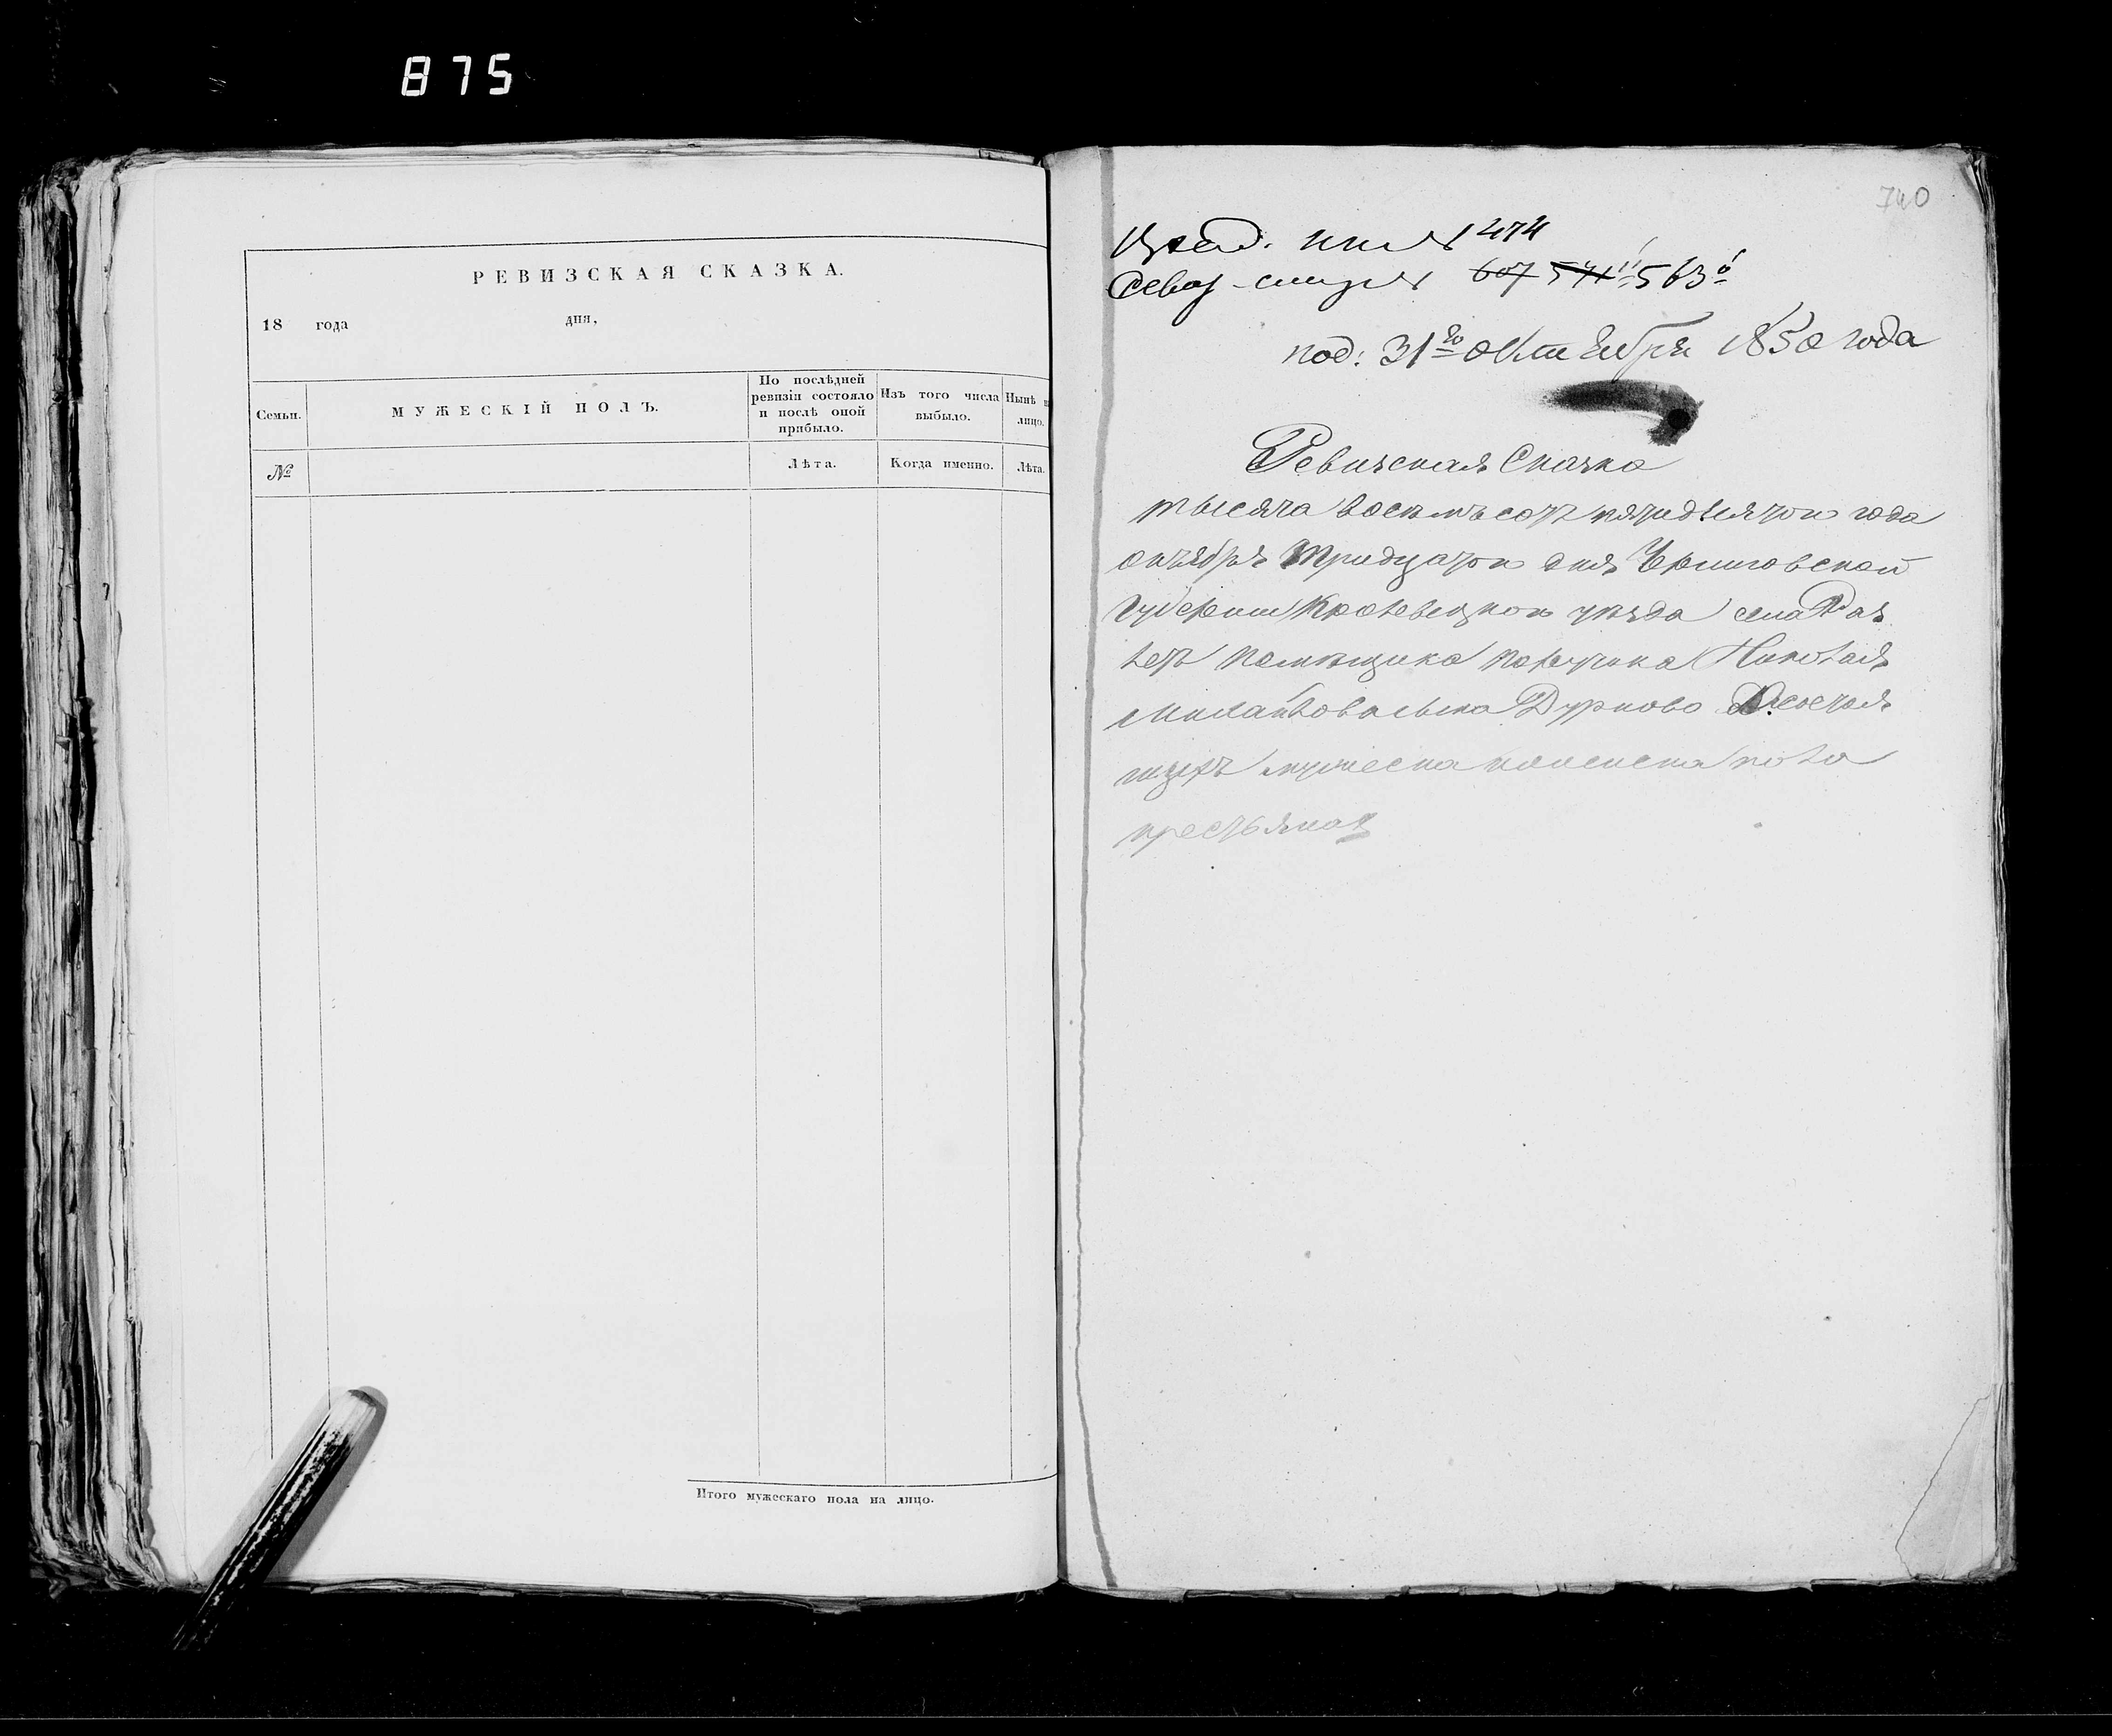 875
РЕВИЗСКАЯ СКАЗКА.
18 года дня,
Семьи.
МУЖЕСКІЙ ПОЛЪ.
По послѣдней ревизіи состояло и послѣ оной прибыло.
Изъ того числа выбыло.
Нынѣ на лицо.
№
Лѣта.
Когда именно.
Лѣта.
Итого мужескаго пола на лицо.
740
474
607 571 563
под: 31го Октября 1850 года
Ревизская Сказка
тысяча восемьсотъ пятидесятого года
октября тридцатого дня Черниговской
Губернии Кролевецкого уезда села
помещика порутчика Николая
Дурново
мужеска женска пола
крестьянах